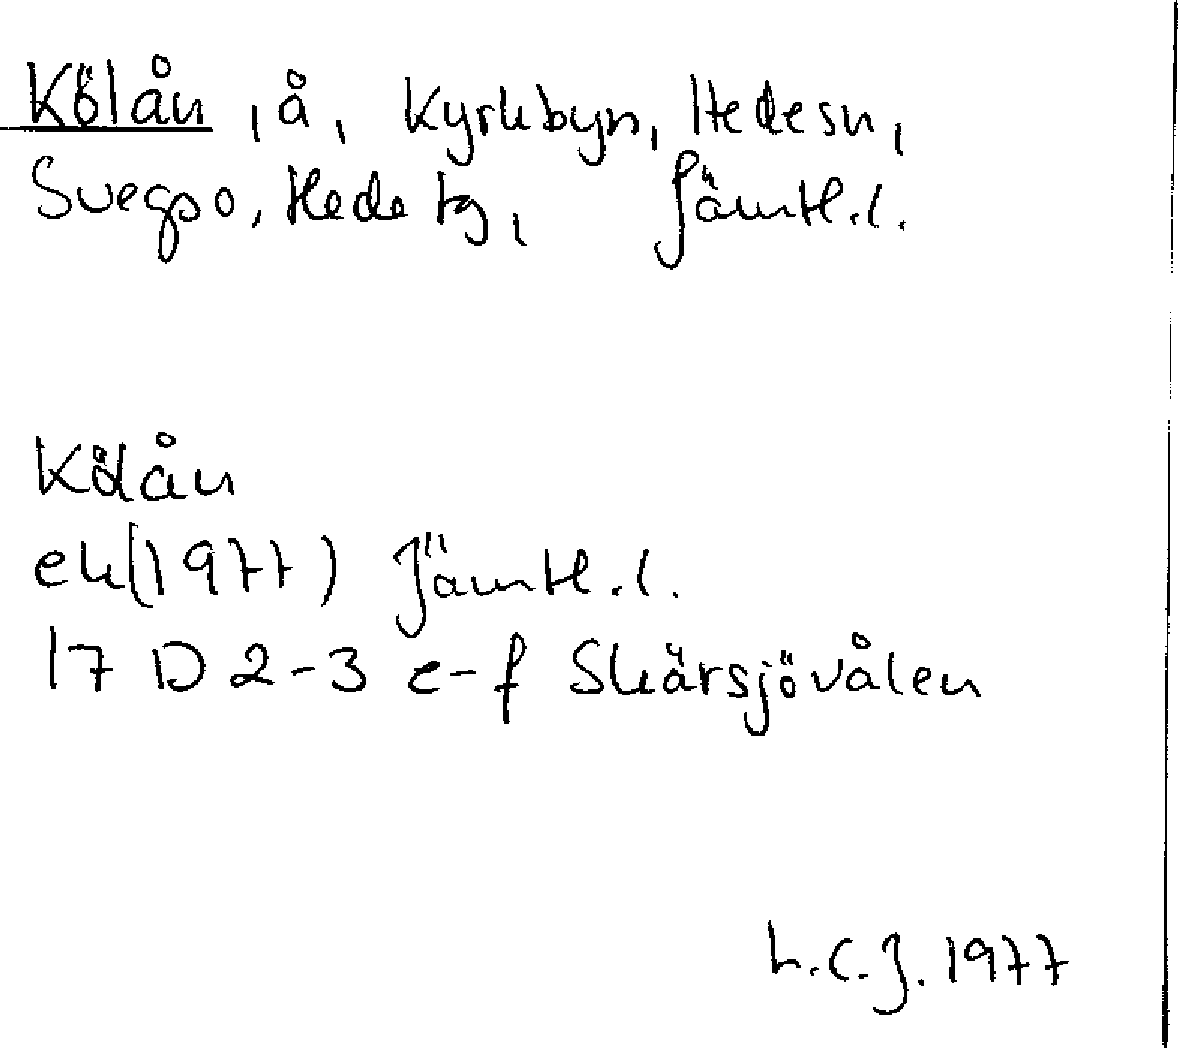 Kölån, å, Kyrkbyn, Hedesn,
Svegspo, Hede tg, Jämtl.l.
Kölån
ek(1977) Jämtl.l.
17 D 2-3 e-f Skärsjövålen
L.C.J. 1977